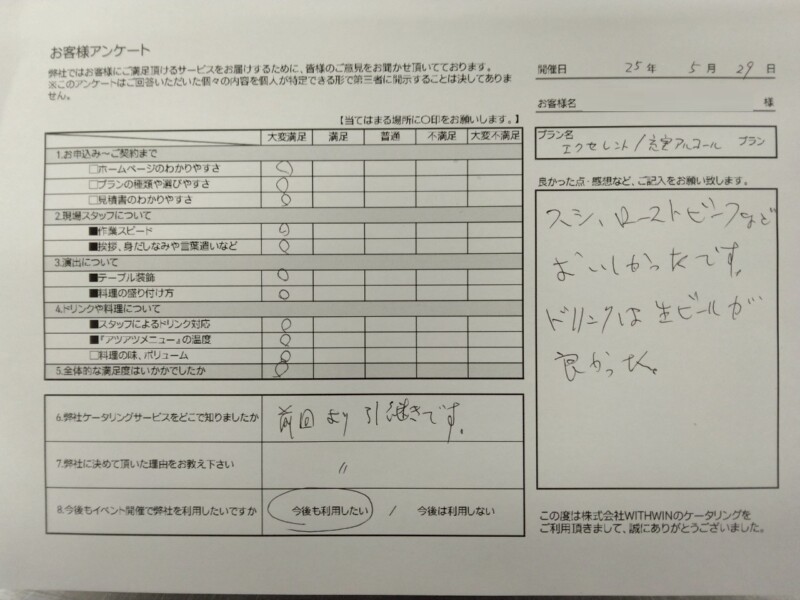 お客様アンケート
弊社ではお客様にご満足頂けるサービスをお届けするために、皆様のご意見をお聞かせ頂いております。
※このアンケートはご回答いただいた個々の内容を個人が特定できる形で第三者に開示することは決してありま
せん。
【当てはまる場所に〇印をお願いします。】
大変満足 満足 普通 不満足 大変不満足
1.お申込み～ご契約まで
□ホームページのわかりやすさ 〇
□プランの種類や選びやすさ 〇
□見積書のわかりやすさ 〇
2.現場スタッフについて
■作業スピード 〇
■挨拶、身だしなみや言葉遣いなど 〇
3.演出について
■テーブル装飾 〇
■料理の盛り付け方 〇
4.ドリンクや料理について
■スタッフによるドリンク対応 〇
■『アツアツメニュー』の温度 〇
□料理の味、ボリューム 〇
5.全体的な満足度はいかがでしたか 〇
6.弊社ケータリングサービスをどこで知りましたか 前回より引継きです。
7.弊社に決めて頂いた理由をお教え下さい 〃
8.今後もイベント開催で弊社を利用したいですか 今後も利用したい / 今後は利用しない
開催日 25 年 5 月 29 日
お客様名 様
プラン名
エクセレント/充実アルコール プラン
良かった点・感想など、ご記入をお願い致します。
スシ、ローストビーフなど
おいしかったです。
ドリンクは生ビールが
良かった。
この度は株式会社WITHWINのケータリングを
ご利用頂きまして、誠にありがとうございました。